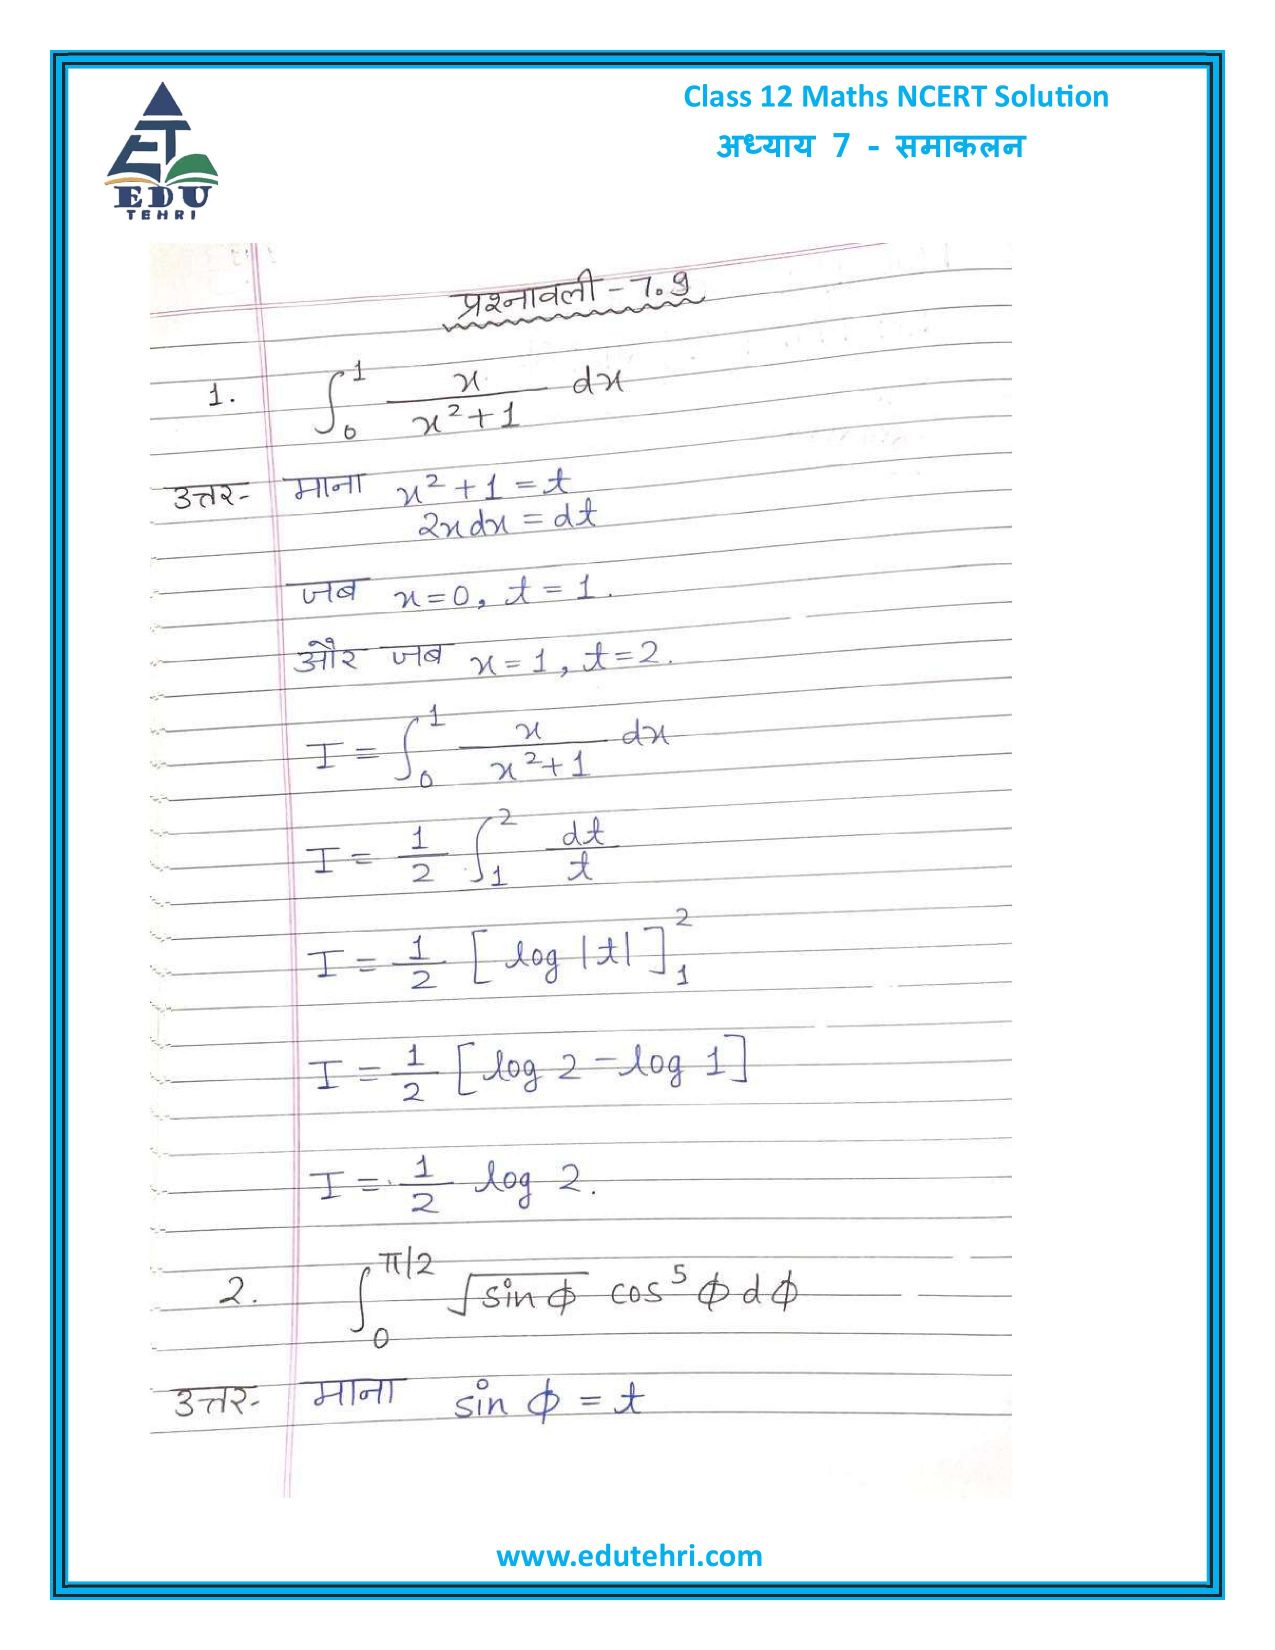 Class 12 Maths NCERT Solution
अध्याय 7 - समाकलन
EDU
TEHRI
प्रश्नावली - 7.9
1. ∫₀¹ x/(x²+1) dx
उत्तर- माना x²+1=t
2xdx = dt
जब x=0, t=1.
और जब x=1, t=2.
I = ∫₀¹ x/(x²+1) dx
I = 1/2 ∫₁² dt/t
I = 1/2 [log |t|]₁²
I = 1/2 [log 2 - log 1]
I = 1/2 log 2.
2. ∫₀^(π/2) √(sin ϕ) cos⁵ ϕ d ϕ
उत्तर- माना sin ϕ = t
www.edutehri.com